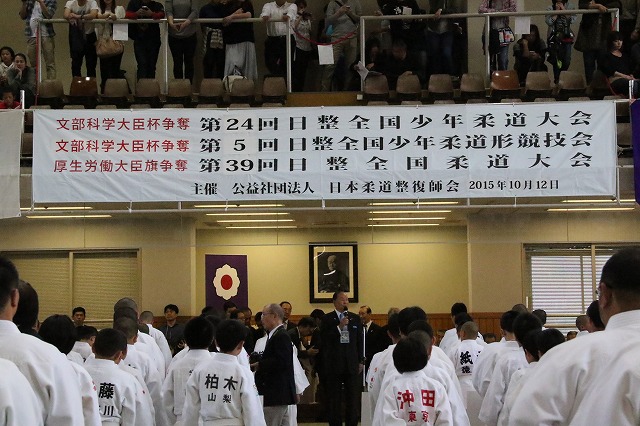 文部科学大臣杯争奪 第24回日整全国少年柔道大会
文部科学大臣杯争奪 第5回日整全国少年柔道形競技会
厚生労働大臣旗争奪 第39回日整全国柔道大会
主催 公益社団法人 日本柔道整復師会 2015年10月12日
藤
柏木
山梨
沖田
東京